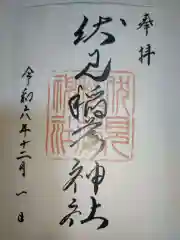 奉拝
伏見稲荷神社
令和六年十二月一日